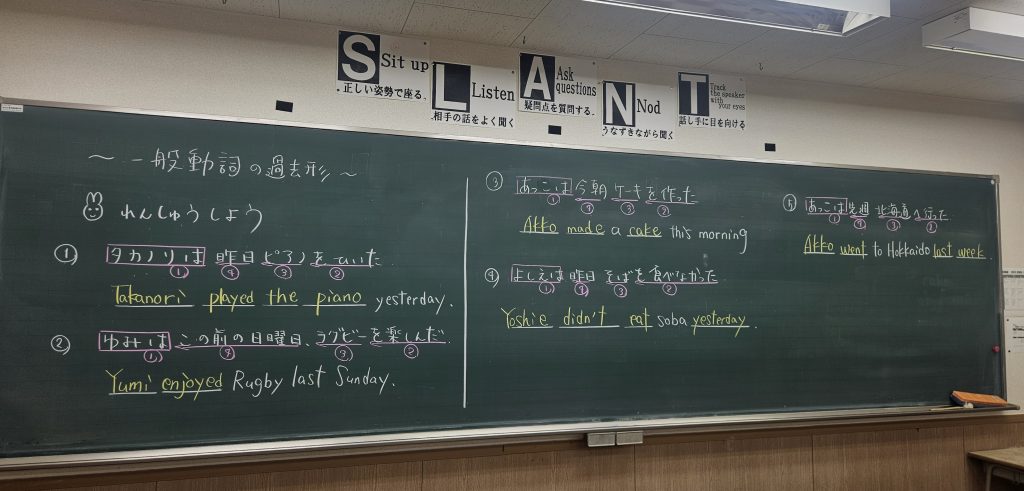 S Sit up
正しい姿勢で座る.
L Listen
相手の話をよく聞く
A Ask questions
疑問点を質問する.
N Nod
うなずきながら聞く
T Track the speaker with your eyes
話し手に目を向ける
～一般動詞の過去形～
れんしゅうしよう
① タカノリは 昨日 ピアノをひいた
① ④ ③ ②
Takanori played the piano yesterday.
② ゆみは この前の日曜日、ラグビーを楽しんだ.
① ④ ③ ②
Yumi enjoyed Rugby last Sunday.
③ あっこは 今朝 ケーキを作った
① ④ ③ ②
Akko made a cake this morning
④ よしえは 昨日 そばを食べなかった
① ④ ③ ②
Yoshie didn't eat soba yesterday.
⑤ あっこは 先週 北海道へ行った
① ④ ③ ②
Akko went to Hokkaido last week.